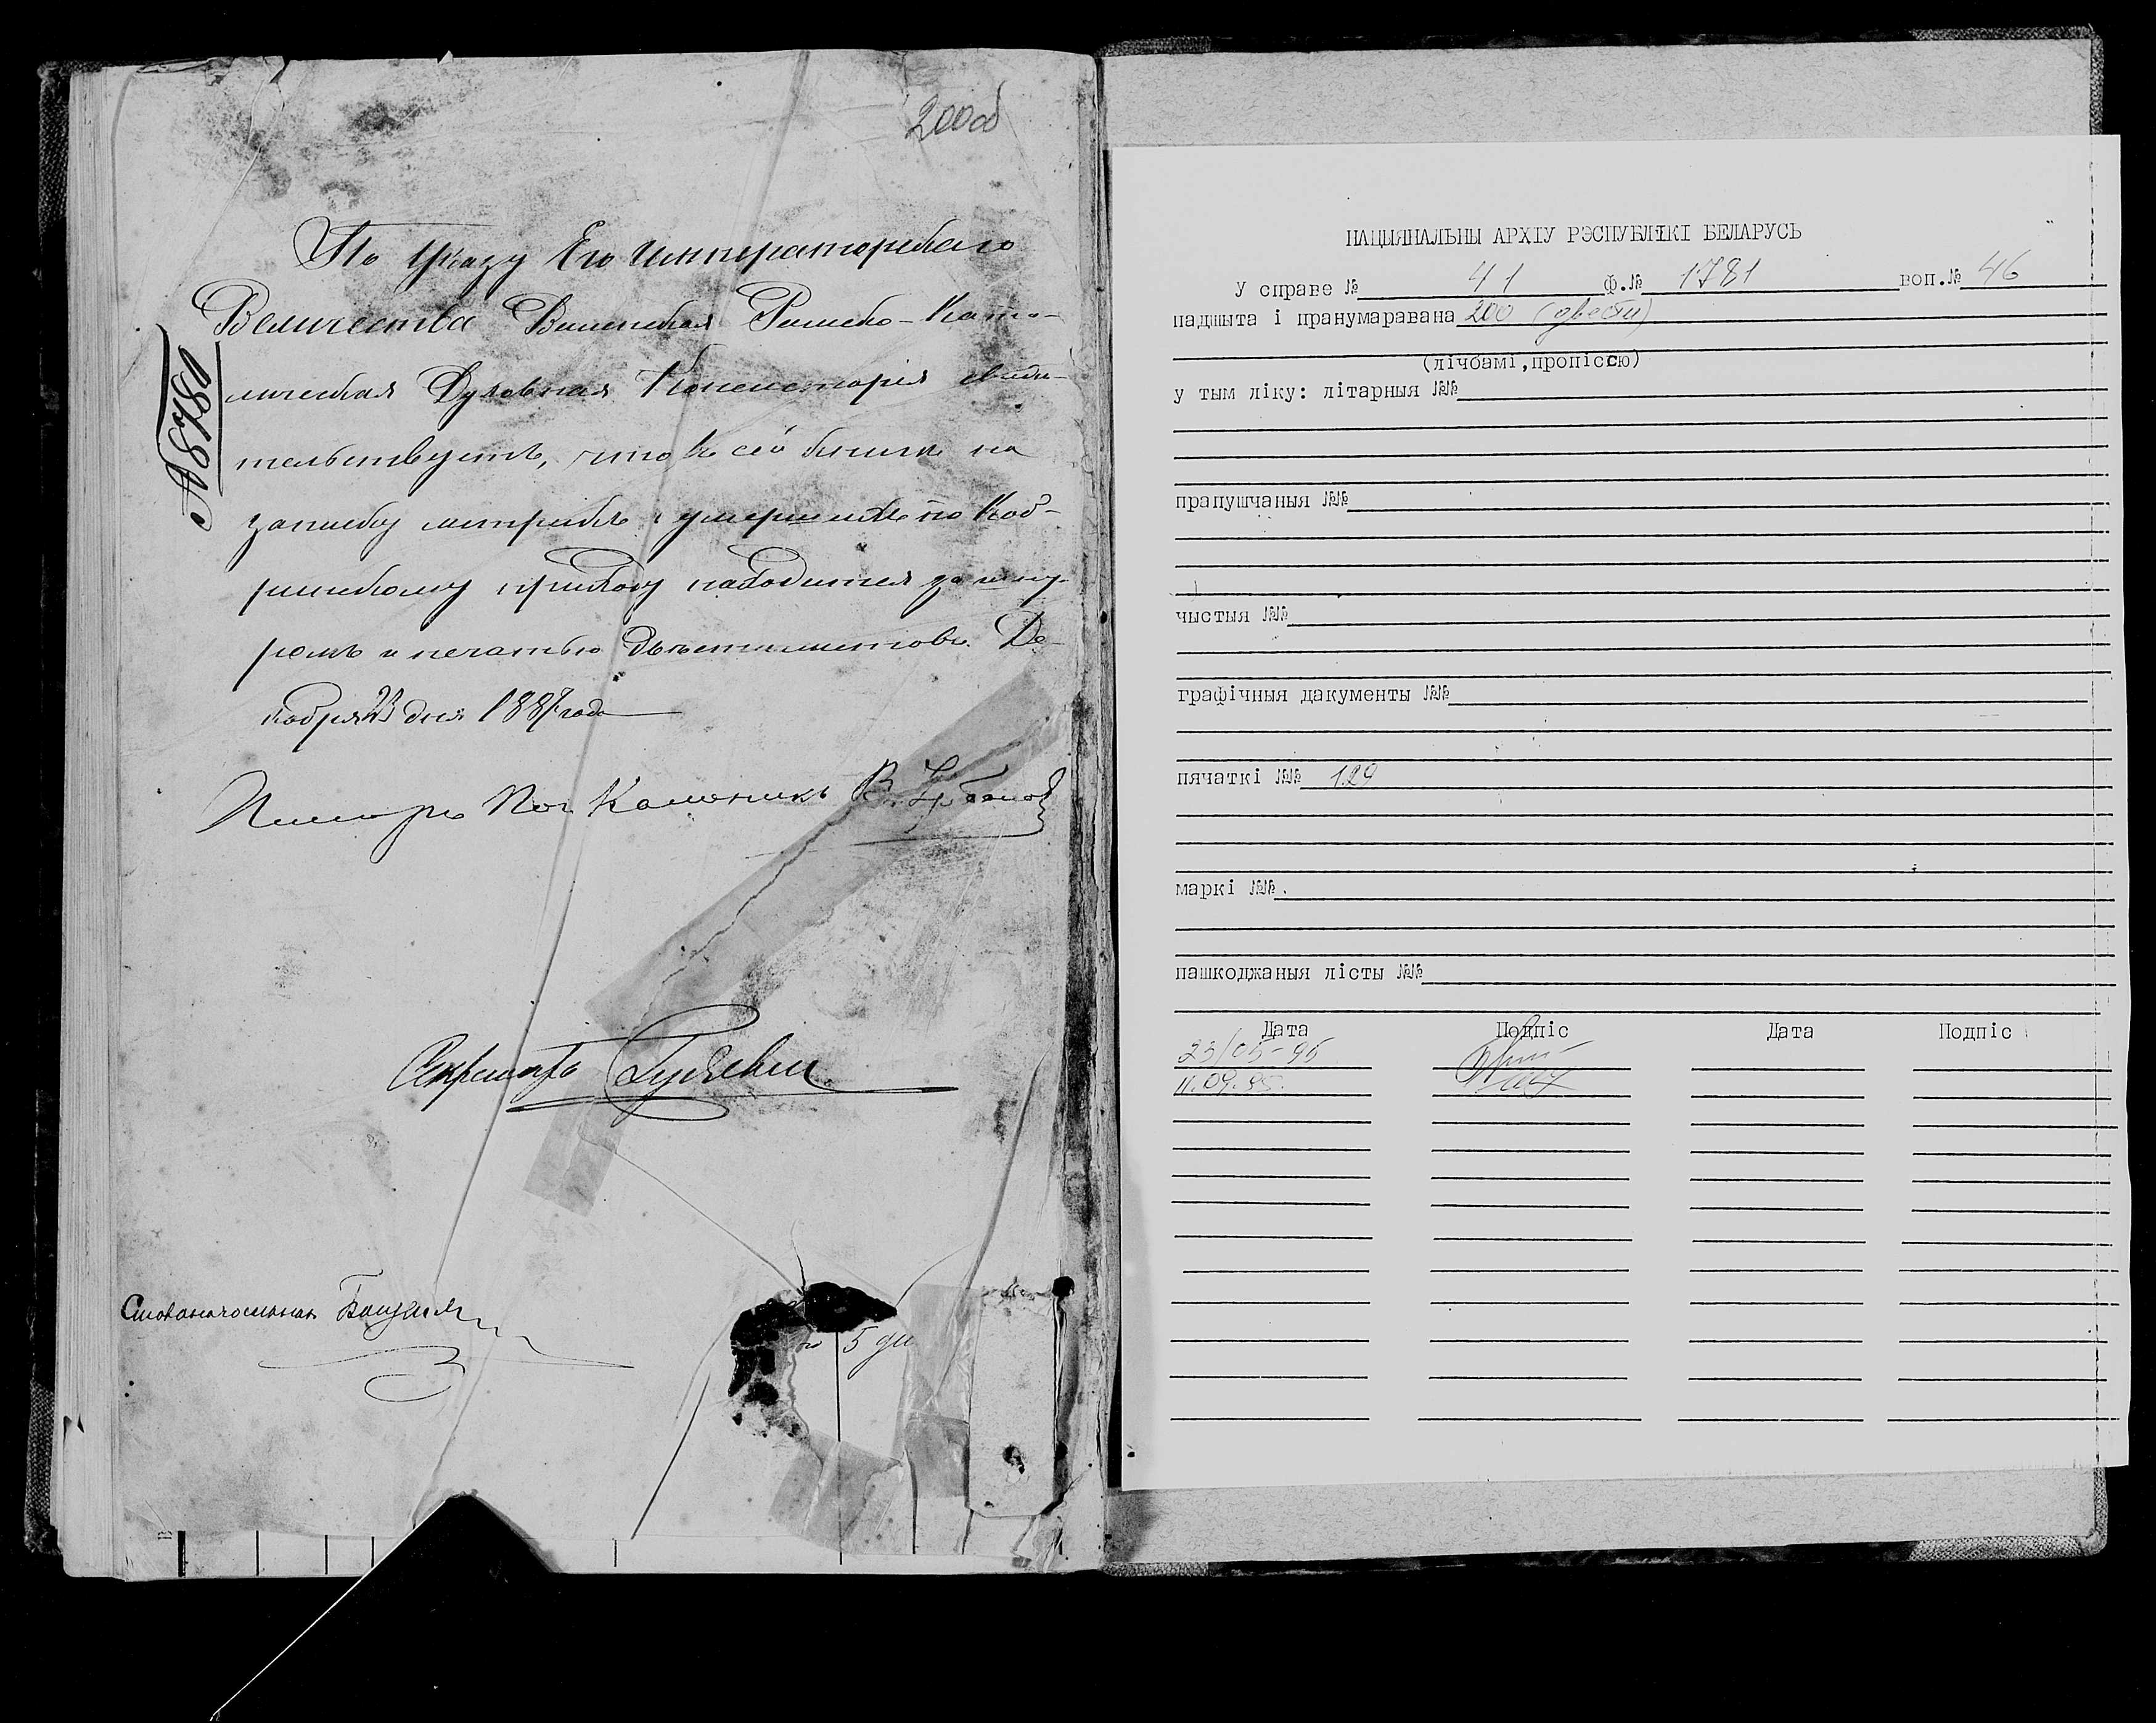 200об
По Указу Его Императорскаго
Величества Виленская Римско-Като-
лическая Духовная Консисторія свиде-
тельствуетъ, что въ сей книгѣ на
записку метрикъ умершихъ по Коб-
ринскому приходу находится за шну-
ромъ и печатью двести листовъ. Де-
кабря 23 дня 1887 года
№ 8780
Каноникъ
Секретарь
Столоначальникъ
5 дн
НАЦЫЯНАЛЬНЫ АРХІУ РЭСПУБЛІКІ БЕЛАРУСЬ
У справе № 41 ф.№ 1781 воп.№ 46
падшыта і пранумаравана 200 (двести)
(лічбамі,пропіссю)
у тым ліку: літарныя №№
прапушчаныя №№
чыстыя №№
графічныя дакументы №№
пячаткі №№ 129
маркі №№
пашкоджаныя лісты №№
Дата Подпіс Дата Подпіс
23/05-95
11.09.95.